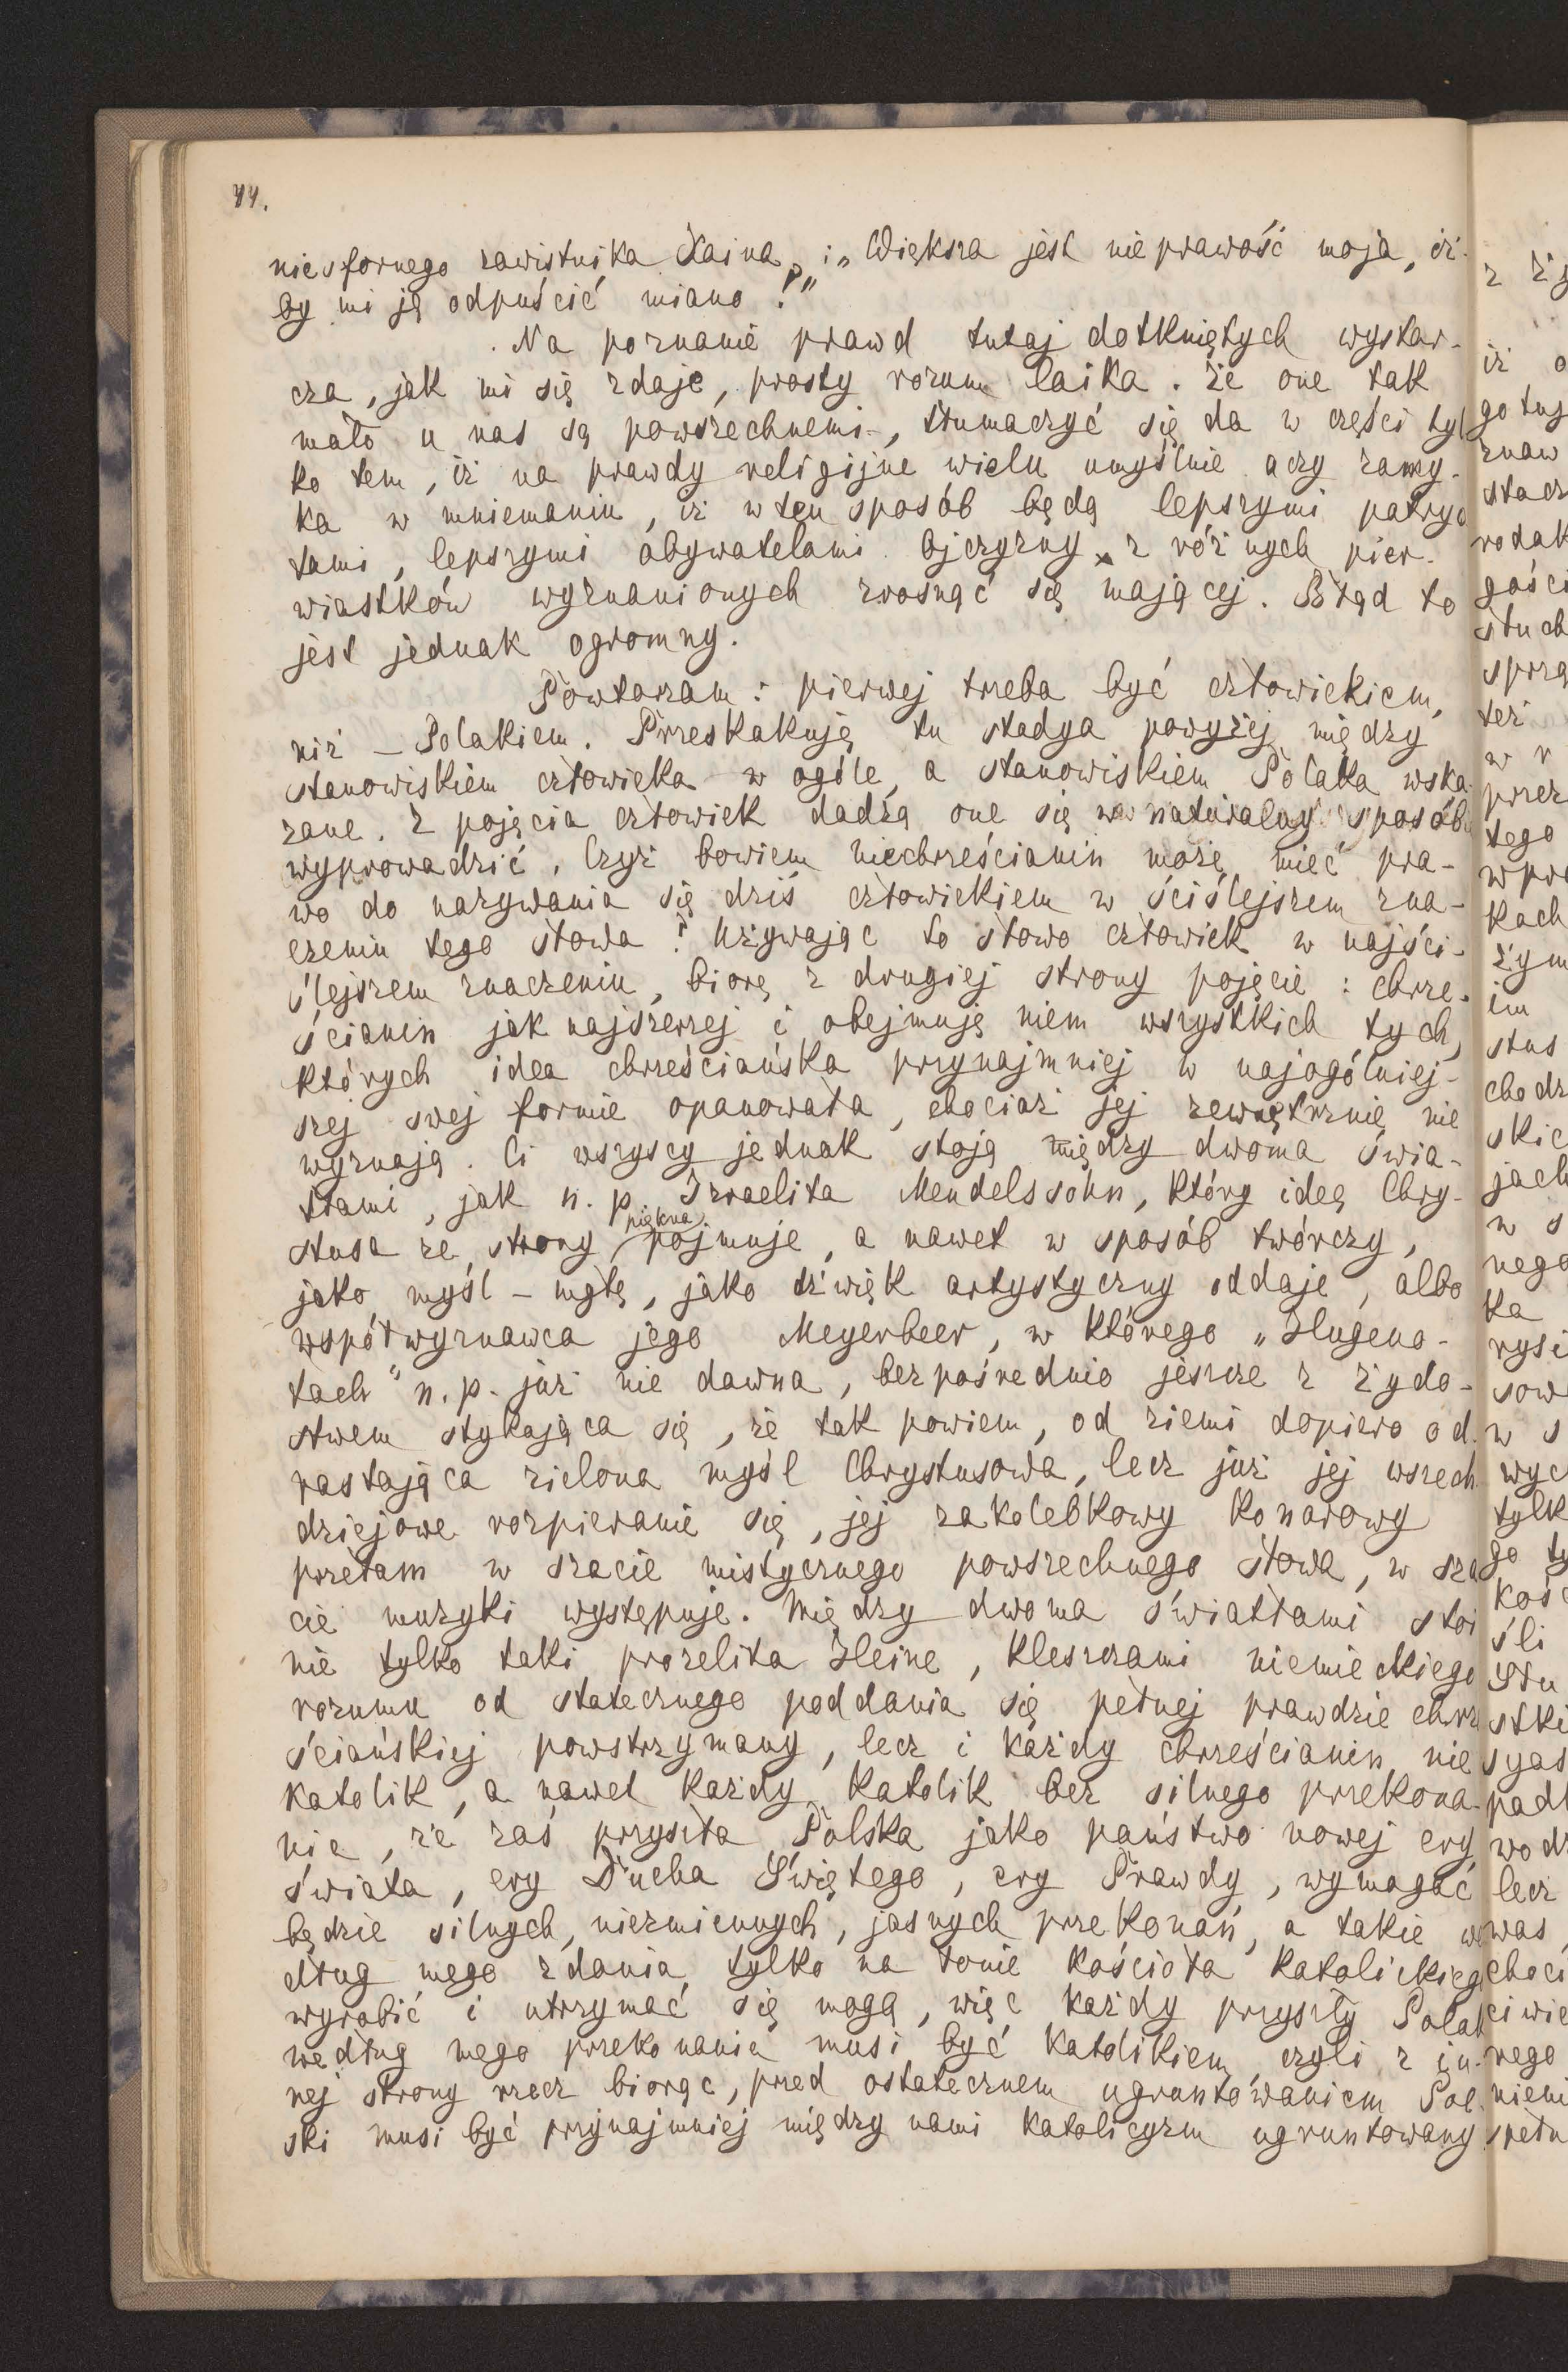 44.
niesfornego zawistnika Kaina, i „Większa jest nieprawość moja, iż-
by mi ją odpuścić miano!"
Na poznanie prawd tutaj dotkniętych wystar-
cza, jak mi się zdaje, prosty rozum laika. Że one tak
mało u nas są powszechnemi, tłumaczyć się da w części tyl
ko tem, iż na prawdy religijne wielu umyślnie oczy zamy-
ka w mniemaniu, iż w ten sposób będą lepszymi patryo
tami, lepszymi obywatelami Ojczyzny, z różnych pier-
wiastków wyznaniowych zrosnąć się mającej. Błąd to
jest jednak ogromny.
Powtarzam: pierwej trzeba być człowiekiem,
niż – Polakiem. Przeskakuję tu stadya powyżej między
stanowiskiem człowieka w ogóle, a stanowiskiem Polaka wska
zane. Z pojęcia człowiek dadzą one się w naturalny sposób
wyprowadzić. Czyż bowiem niechrześcianin może mieć pra-
wo do nazywania się dziś człowiekiem w ściślejszem zna-
czeniu tego słowa? Używając to słowo człowiek w najści-
ślejszem znaczeniu, biorę z drugiej strony pojęcie: chrze-
ścianin jak najszerzej i obejmuję niem wszystkich tych,
których idea chrześciańska przynajmniej w najogólniej-
szej swej formie opanowała, chociaż jej zewnętrznie nie
wyznają. Ci wszyscy jednak stoją między dwoma świa-
tłami, jak n. p. Izraelita Mendelssohn, który ideę Chry-
stusa ze strony piękna pojmuje, a nawet w sposób twórczy,
jako myśl – mgłę, jako dźwięk artystyczny oddaje, albo
współwyznawca jego Meyerbeer, w którego „Hugeno-
tach" n. p. już nie dawna, bezpośrednio jeszcze z żydo-
stwem stykająca się, że tak powiem, od ziemi dopiero od-
rastająca zielona myśl Chrystusowa, lecz już jej wszech
dziejowe rozpieranie się, jej zakolebkowy konarowy
przełam w szacie mistycznego powszechnego słowa, w sza
cie muzyki występuje. Między dwoma światłami stoi
nie tylko taki prozelita Heine, kleszczami niemieckiego
rozumu od statecznego poddania się pełnej prawdzie chrz
ściańskiej powstrzymany, lecz i każdy chrześcianin nie
katolik, a nawet każdy katolik bez silnego przekona-
nia, że zaś przyszła Polska jako państwo nowej ery
świata, ery Ducha Świętego, ery Prawdy, wymagać
będzie silnych, niezmiennych, jasnych przekonań, a takie we
dług mego zdania tylko na łonie kościoła katolickieg
wyrobić i utrzymać się mogą, więc każdy przyszły Polak
według mego przekonania musi być katolikiem, czyli z in-
nej strony rzecz biorąc, przed ostatecznem ugruntowaniem Pol-
ski musi być przynajmniej między nami katolicyzm ugruntowany